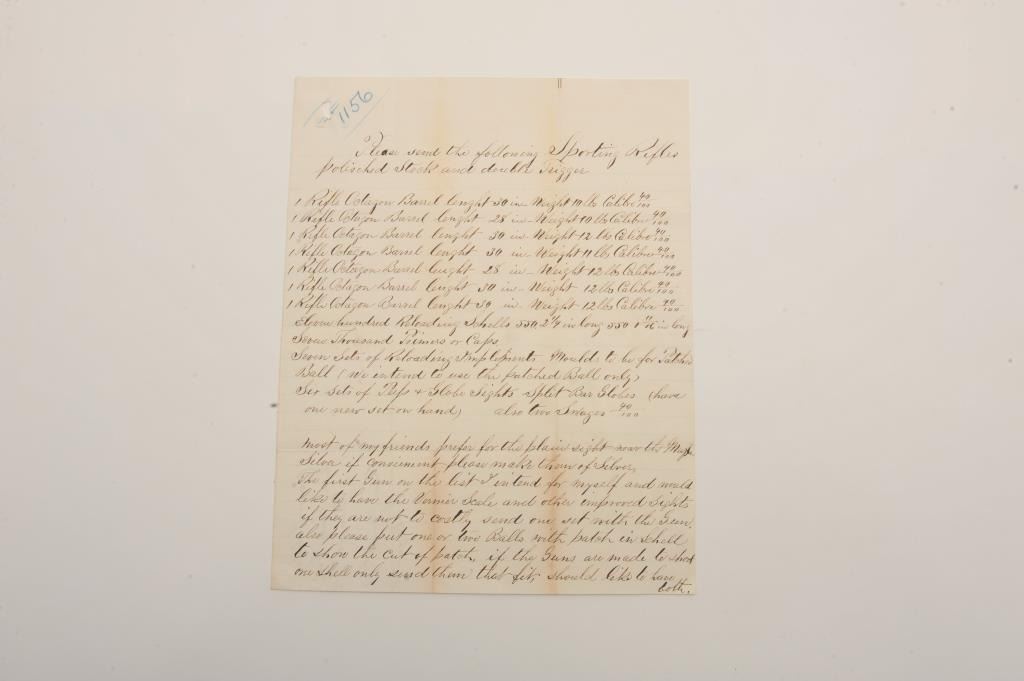 1156
Please send the following Sporting Rifles
polisched Stock and double Trigger
1 Rifle Octagon Barrel lenght 30 in - Weight 10 lb Calibre 40/100
1 Rifle Octagon Barrel lenght 28 in - Weight 10 lb Calibre 40/100
1 Rifle Octagon Barrel lenght 30 in - Weight 12 lbs Calibre 40/100
1 Rifle Octagon Barrel lenght 30 in - Weight 11 lbs Calibre 40/100
1 Rifle Octagon Barrel lenght 28 in - Weight 12 lbs Calibre 40/100
1 Rifle Octagon Barrel lenght 30 in - Weight 12 lbs Calibre 40/100
1 Rifle Octagon Barrel lenght 30 in - Weight 12 lbs Calibre 40/100
Eleven hundred Reloading Schells 550, 2 1/4 in long 550 1 11/16 in long
Seven Thousand Primers or Caps
Seven Sets of Reloading Implements Moulds to be for Patched
Ball (we intend to use the patched Ball only)
Six Sets of Peep & Globe Sights Split Bar Globes (have
one new set on hand) also two Swages 40/100
Most of my friends prefer for the plain sight near the
Silver if convienient please make them of Silver,
The first Gun on the list I intend for myself and would
like to have the Vernier Scale and other improved Sights
if they are not to costly send one set with the Gun,
also please put one or two Balls with patch in schell
to show the cut of patch, if the Guns are made to shoot
one shell only send them that fit, should like to have
both.